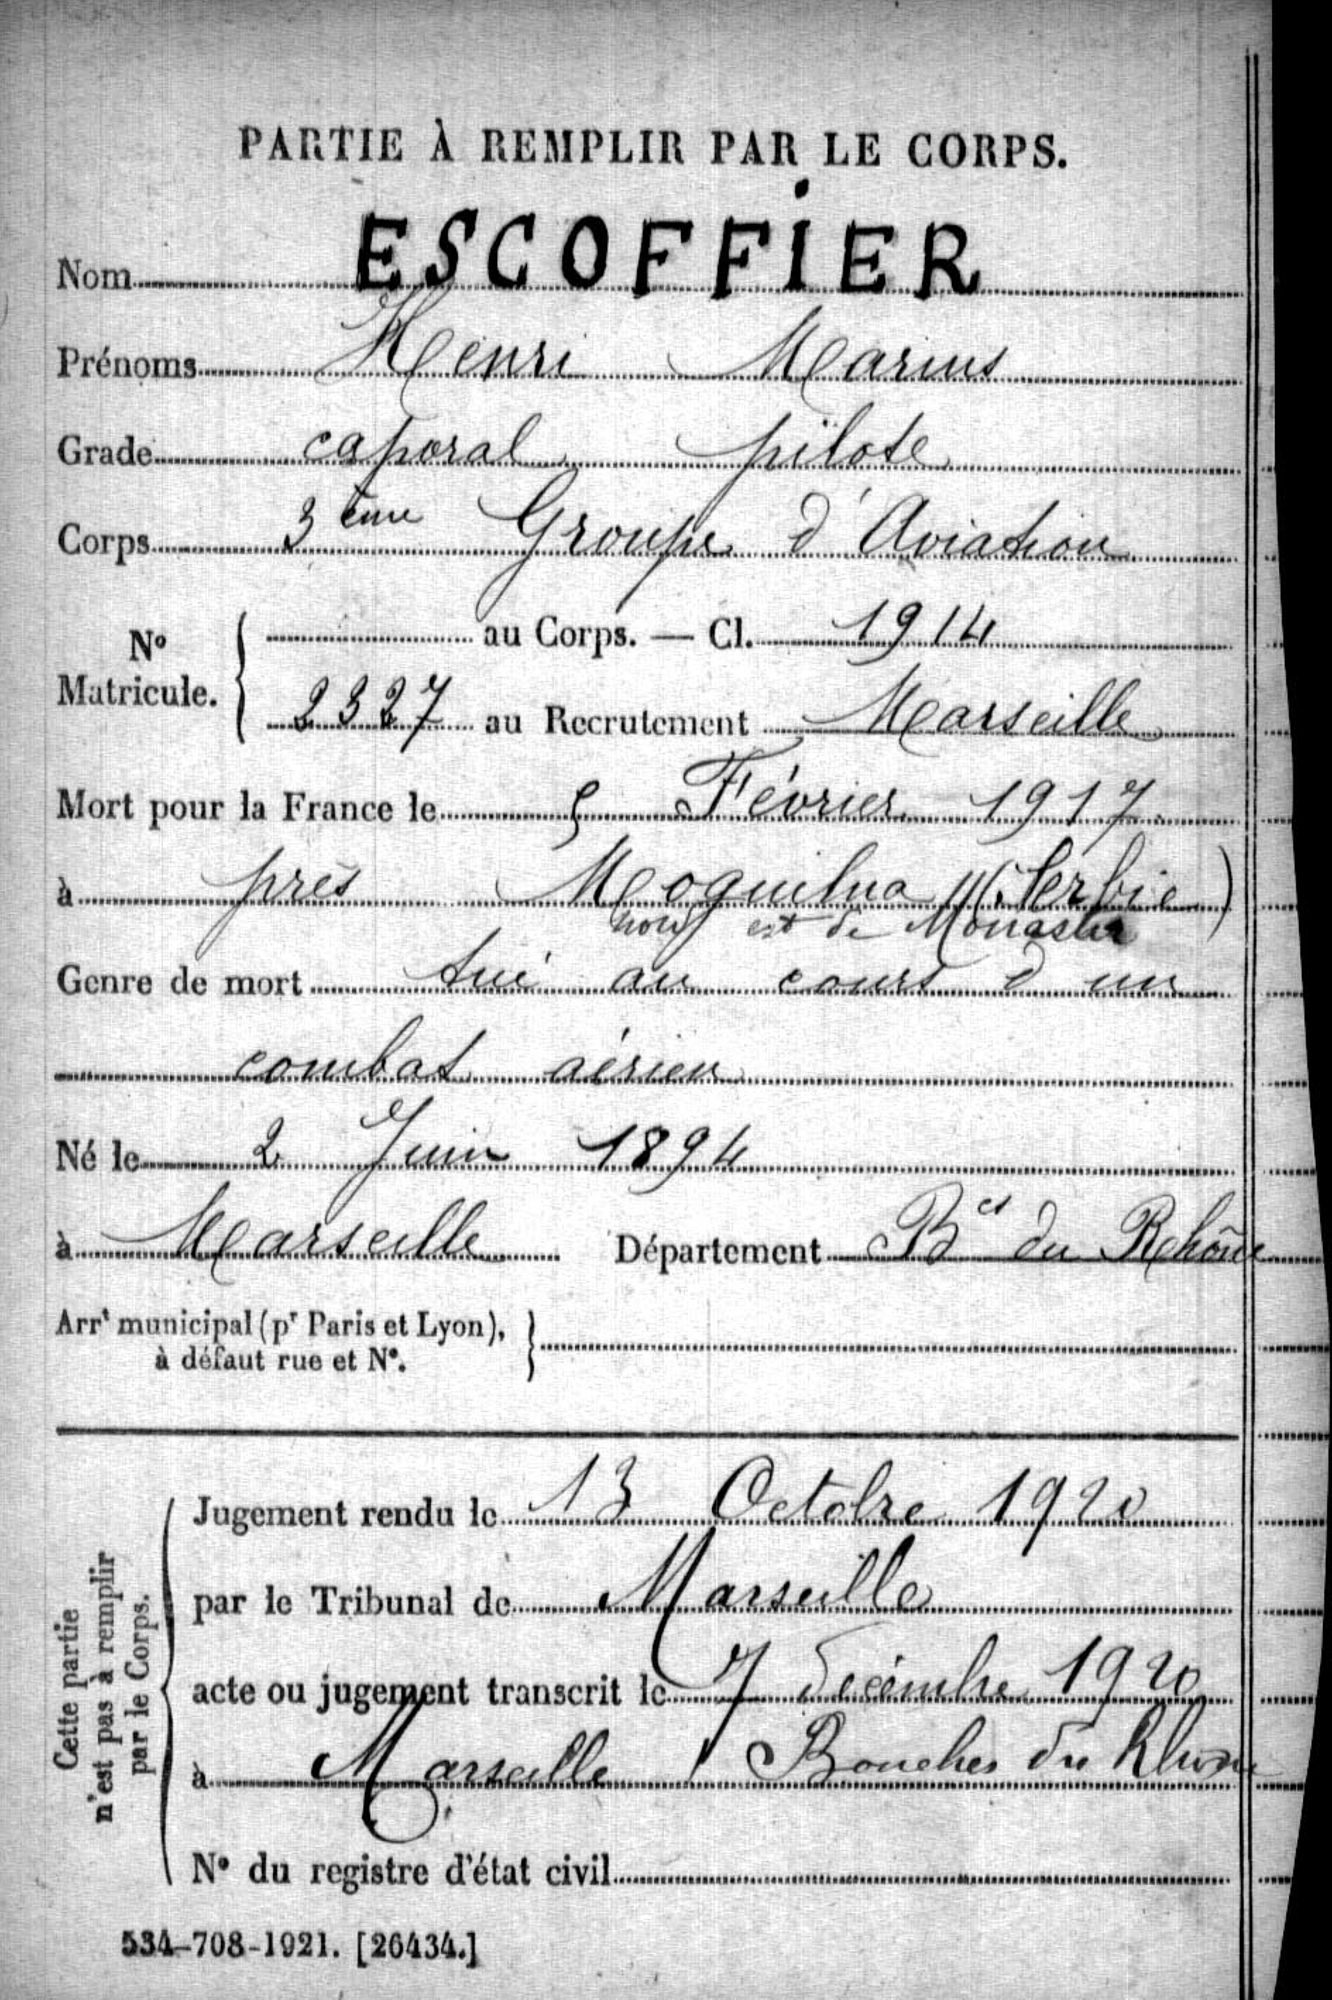 PARTIE À REMPLIR PAR LE CORPS.
Nom ESCOFFiER
Prénoms Henri Marius
Grade caporal pilote
Corps 3ème Groupe d'Aviation
No Matricule. { au Corps. — Cl. 1914
2327 au Recrutement Marseille
Mort pour la France le 5 Février 1917
à près Moguilna (Serbie)
nord est de Monastir
Genre de mort tué au cours d'un
combat aérien
Né le 2 Juin 1894
à Marseille Département Bes du Rhône
Arrt municipal (pr Paris et Lyon),
à défaut rue et No. }
Cette partie
n'est pas à remplir
par le Corps.
Jugement rendu le 13 Octobre 1920
par le Tribunal de Marseille
acte ou jugement transcrit le 7 décembre 1920
à Marseille Bouches du Rhône
No du registre d'état civil
534-708-1921. [26434.]